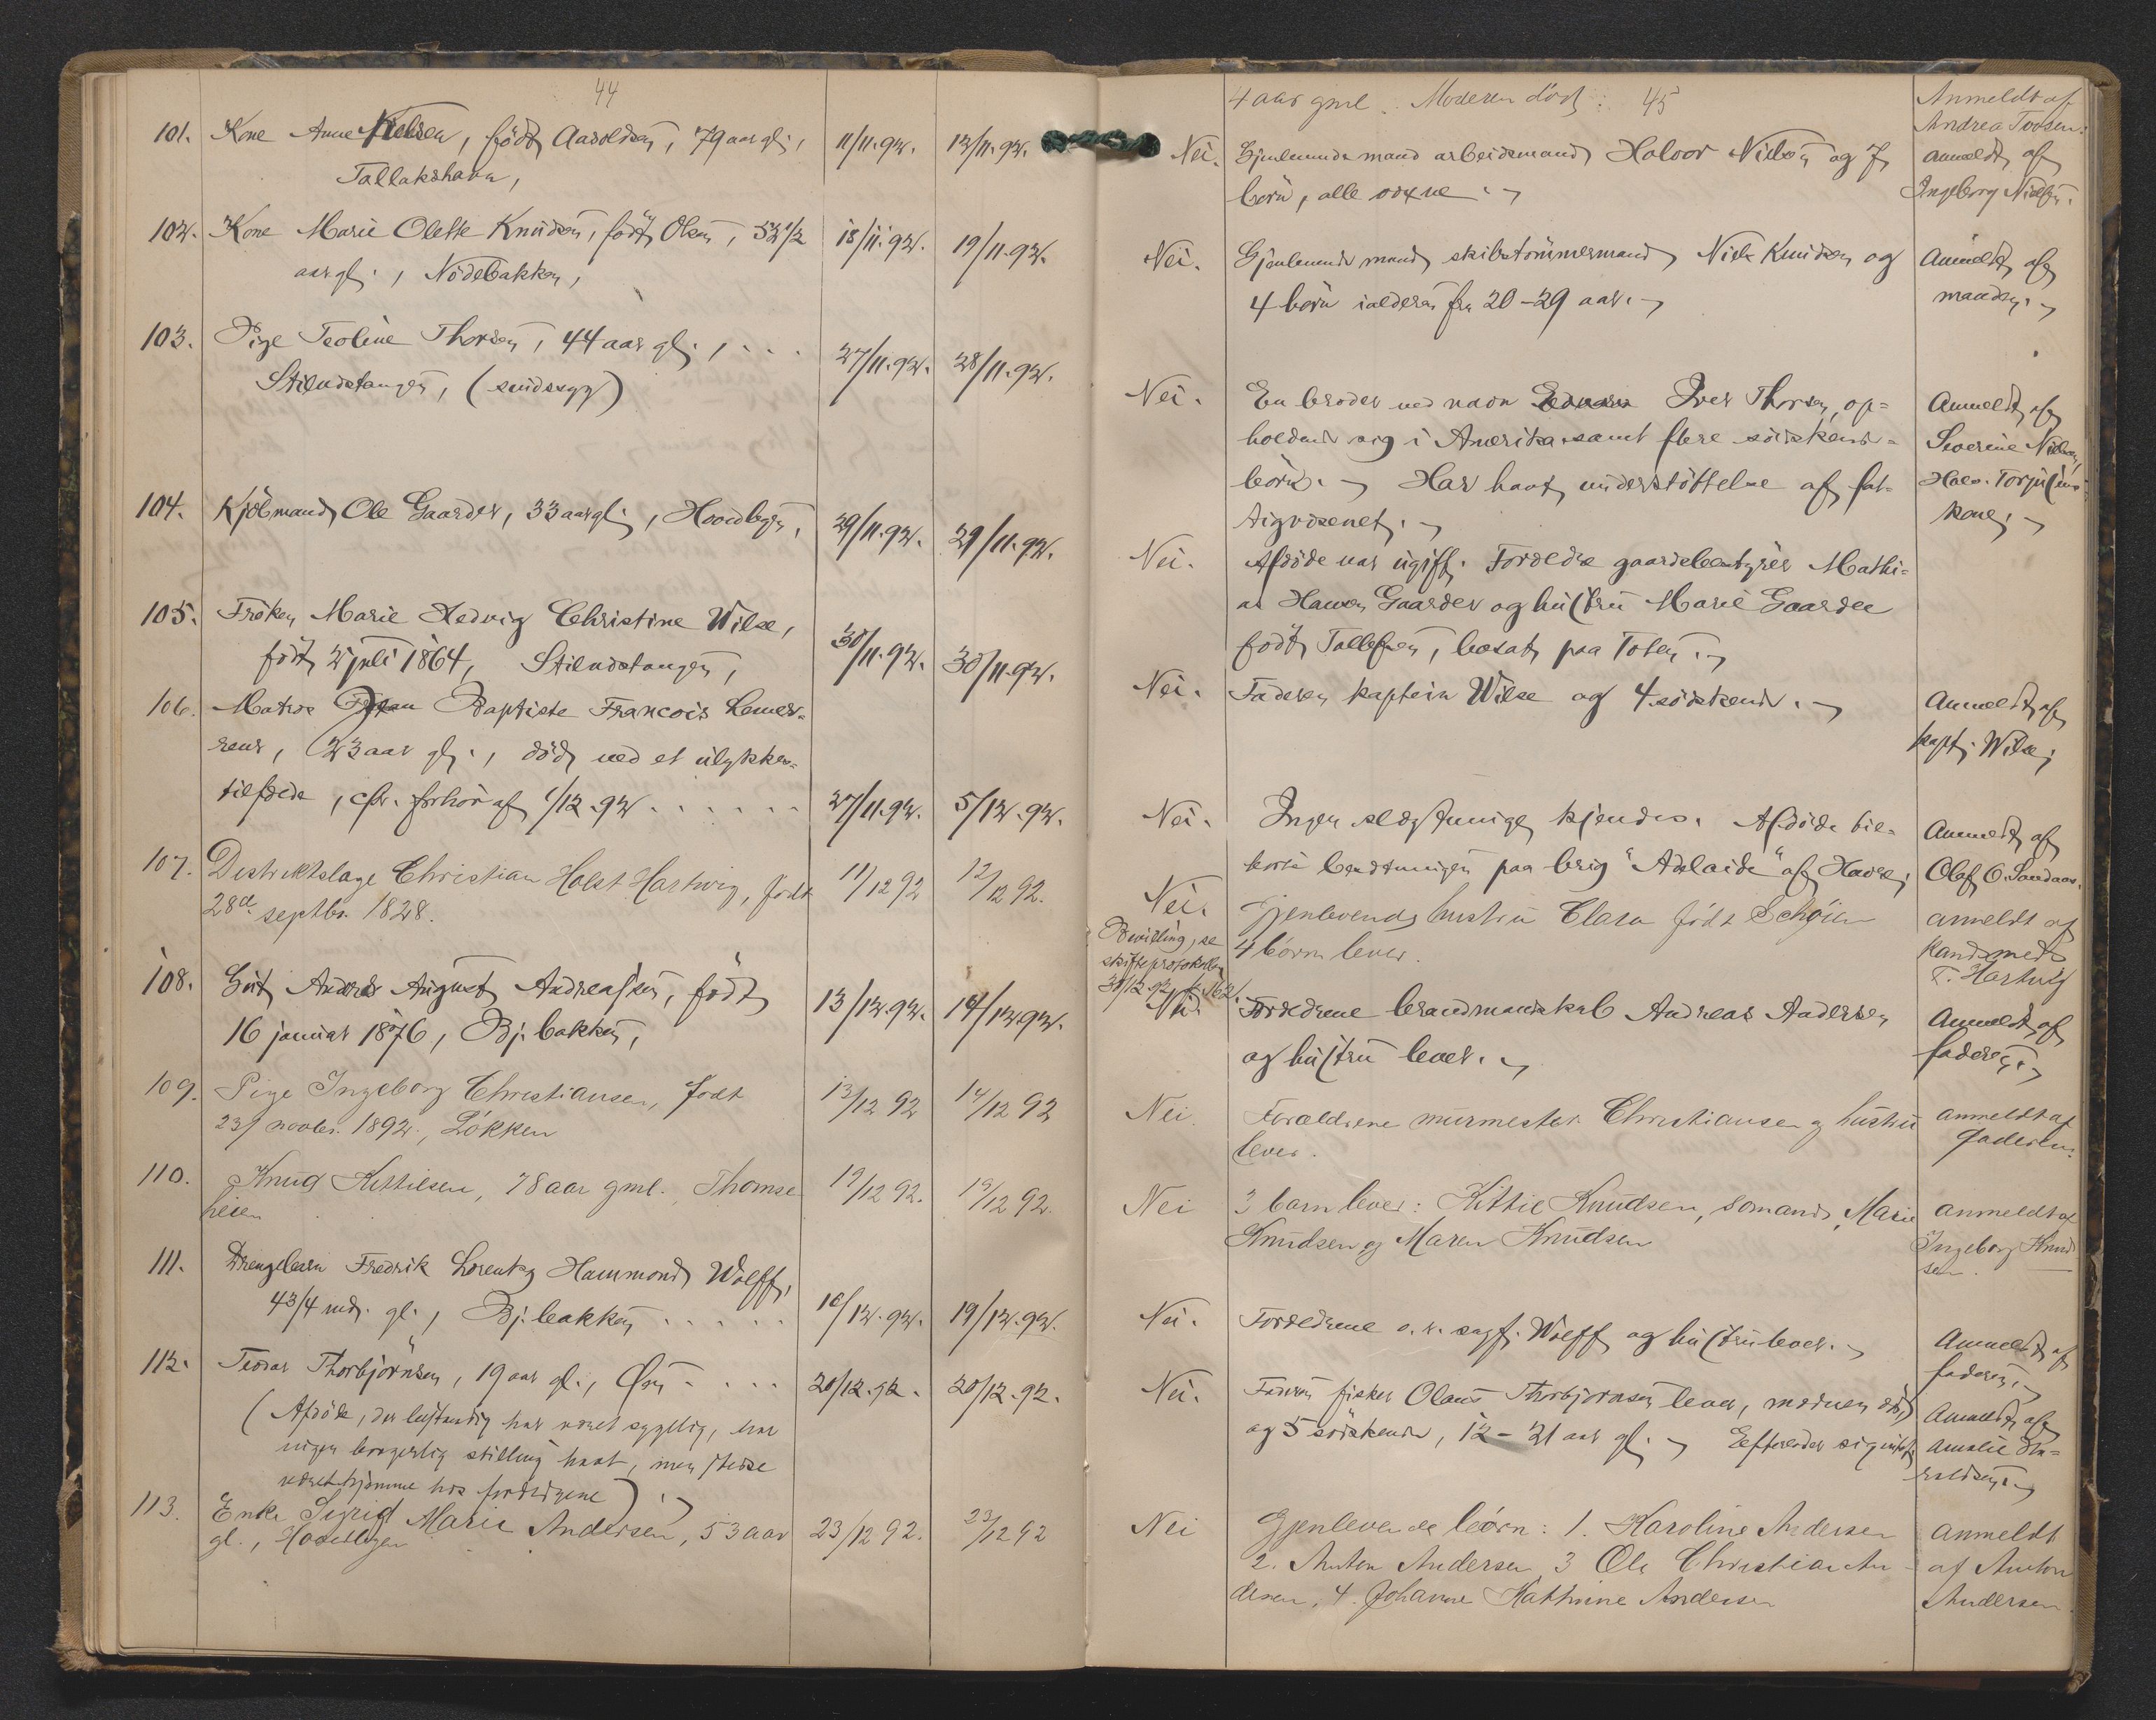 44
101. Kone Anne Nielsen, født Aaroldsen, 79 aar gl.,
Tallakshavn,
11/11.92. 12/11.92.
102. Kone Marie Olette Knudsen, født Olsen, 52 1/2
aar gl., Nödebakken,
18/11.92. 19/11.92.
103. Pige Teoline Thorsen, 44 aar gl.,
Stilndstangen, (sindssyg)
27/11.92. 28/11.92.
104. Kjöbmand Ole Gaarder, 33 aar gl.,
29/11.92. 29/11.92.
105. Fröken Marie Hedvig Christine Wilse,
født 2 juli 1864, Stilndstangen,
30/11.92. 30/11.92.
106. Matros Jean Baptiste Francois
23 aar gl., död ved et ulykkes=
tilfælde, cfr. forhör af 1/12.92
27/11.92. 5/12.92.
107. Distriktslæge Christian Holst Hartwig, født
28de septbr. 1828.
11/12 92 12/12 92.
108. Gut Anders August Andreassen, född
16 januar 1876, Bj. bakken,
13/12.92. 14/12.92.
109. Pige Ingeborg Christiansen, født
23/ novbr. 1892., Lökken
13/12 92 14/12 92
110. Knud Kittilsen, 78 aar gml. Thomse
heien
19/12 92. 19/12 92.
111. Drengebarn Fredrik Lorentz Hammond Wolff,
4 3/4 md. gl., Bj. bakken
16/12.92. 19/12.92.
112. Teodor Thorbjörnsen, 19 aar gl.,
20/12.92. 20/12.92.
(Afdöde, der bestandig har været sygelig, har
ingen borgerlig stilling havt, men stedse
været hjemme hos forældrene)
113. Enke Sigrid Marie Andersen, 53 aar
gl.,
23/12 92. 23/12 92
4 aar gml. Moderen död. 45
Anmeldt af
Andrea
Nei. Gjenlevende mand arbeidsmand Halvor Nielsen og 7
börn, alle voxne.
Anmeldt af
Ingeborg Nielsen.
Nei. Gjenlevende mand, skibstömmermand Niels Knudsen og
4 börn i alderen fra 20-29 aar.
Anmeldt af
manden.
Nei. En broder ved navn Iver Thorsen, op=
holdende sig i Amerika samt flere söskende=
börn. Har havt understöttelse af fat=
tigvæsenet.
Anmeldt af
Severine Nielsen,
kone.
Nei. Afdöde var ugift. Forældre gaardsbestyrer Mathi=
as Hansen Gaarder og hustru Marie Gaarder
født Tollefsen, bosat paa Toten.
Nei. Faderen kaptein Wilse og 4 söskende.
Anmeldt af
kapt. Wilse.
Nei. Ingen slægtninge kjendes. Afdöde til=
hörte besætningen paa brig "Adelaide" af Havre.
Anmeldt af
Olaf O. Sandaas.
Nei.
Bevilling, se
skifteprotokollen
30/12.92, f. 162.
Gjenlevende hustru Clara født Schøien
4 börn lever.
anmeldt af
kand. med.
F. Hartwig
Nei. Forældrene brandmandskab Andreas Andersen
og hustru lever.
Anmeldt af
faderen.
Nei. Forældrene murmester Christiansen og hustru
lever.
anmeldt af
Faderen.
Nei 3 barn lever: Kittil Knudsen, sömand, Marie
Knudsen og Maren Knudsen
anmeldt af
Ingeborg Knud
sen.
Nei. Forældrene o.r. sagf. Wolff og hustru lever.
Anmeldt af
faderen.
Nei. Faderen fisker Olaus Thorbjörnsen lever, moderen död
og 5 söskende, 12-21 aar gl. Efterlader sig intet.
Anmeldt af
Amalie
Nei Gjenlevende börn: 1. Karoline Andersen
2. Anton Andersen 3 Ole Christian An-
dersen, 4. Johanne Kathrine Andersen
anmeldt
af Anton
Andersen.